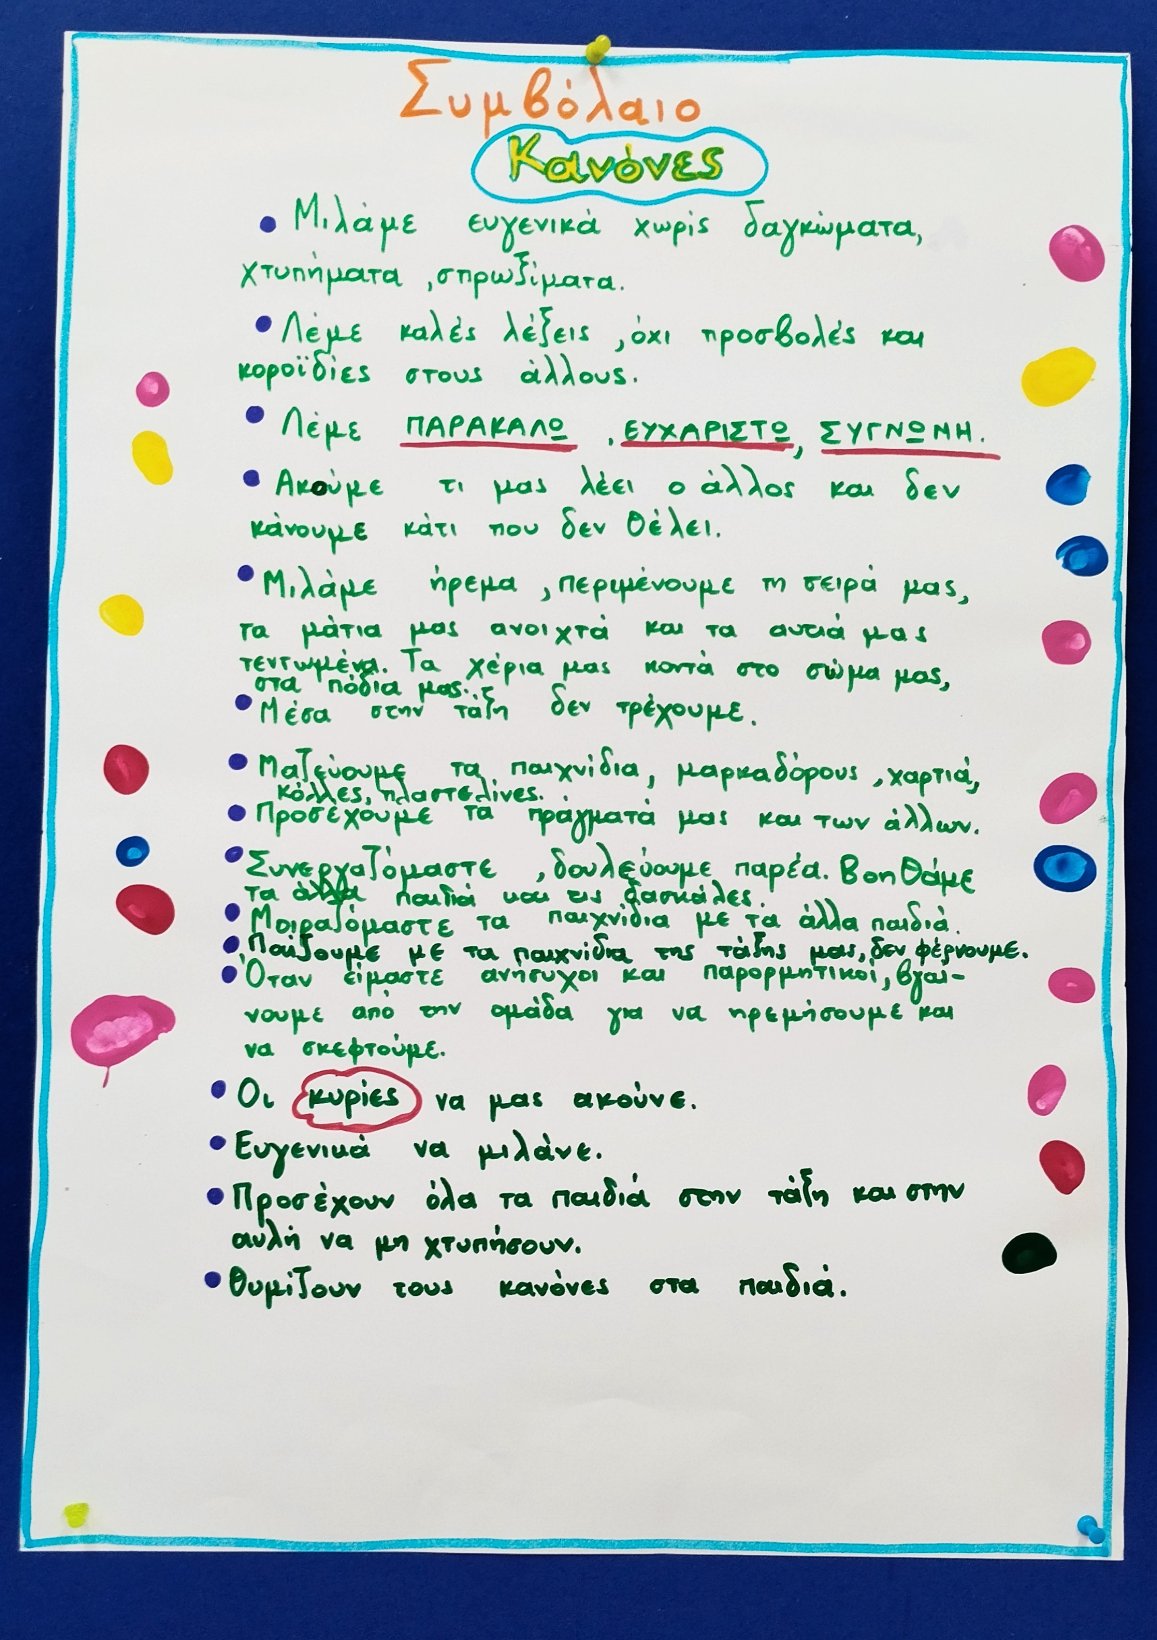 Συμβόλαιο
Κανόνες
• Μιλάμε ευγενικά χωρίς δαγκώματα,
χτυπήματα, σπρωξίματα.
• Λέμε καλές λέξεις, όχι προσβολές και
κοροϊδίες στους άλλους.
• Λέμε ΠΑΡΑΚΑΛΩ, ΕΥΧΑΡΙΣΤΩ, ΣΥΓΝΩΜΗ.
• Ακούμε τι μας λέει ο άλλος και δεν
κάνουμε κάτι που δεν θέλει.
• Μιλάμε ήρεμα, περιμένουμε τη σειρά μας,
τα μάτια μας ανοιχτά και τα αυτιά μας
τεντωμένα. Τα χέρια μας κοντά στο σώμα μας,
στα πόδια μας.
• Μέσα στην τάξη δεν τρέχουμε.
• Μαζεύουμε τα παιχνίδια, μαρκαδόρους, χαρτιά,
κόλλες, πλαστελίνες.
• Προσέχουμε τα πράγματά μας και των άλλων.
• Συνεργαζόμαστε, δουλεύουμε παρέα. Βοηθάμε
τα άλλα παιδιά και τις δασκάλες.
• Μοιραζόμαστε τα παιχνίδια με τα άλλα παιδιά.
• Παίζουμε με τα παιχνίδια της τάξης μας, δεν φέρνουμε.
• Όταν είμαστε ανήσυχοι και παρορμητικοί, βγαί-
νουμε από την ομάδα για να ηρεμήσουμε και
να σκεφτούμε.
• Οι κυρίες να μας ακούνε.
• Ευγενικά να μιλάνε.
• Προσέχουν όλα τα παιδιά στην τάξη και στην
αυλή να μη χτυπήσουν.
• Θυμίζουν τους κανόνες στα παιδιά.